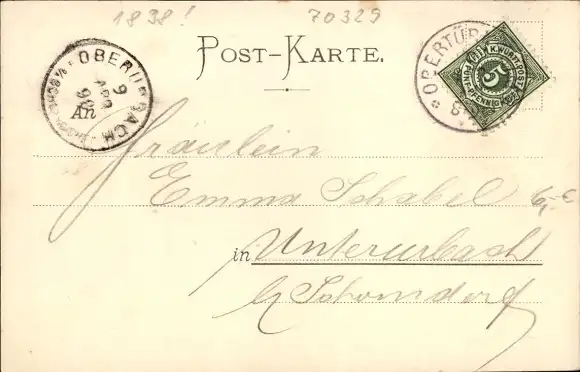 1898! 70329
POST-KARTE.
OBERURBACH
9
APR
98
OBERTÜR
K. WÜRTT. POST
5
FÜNF PFENNIG
An
Fräulein
Emma Schabel
6,- €
in Unterurbach
b/ Schorndorf